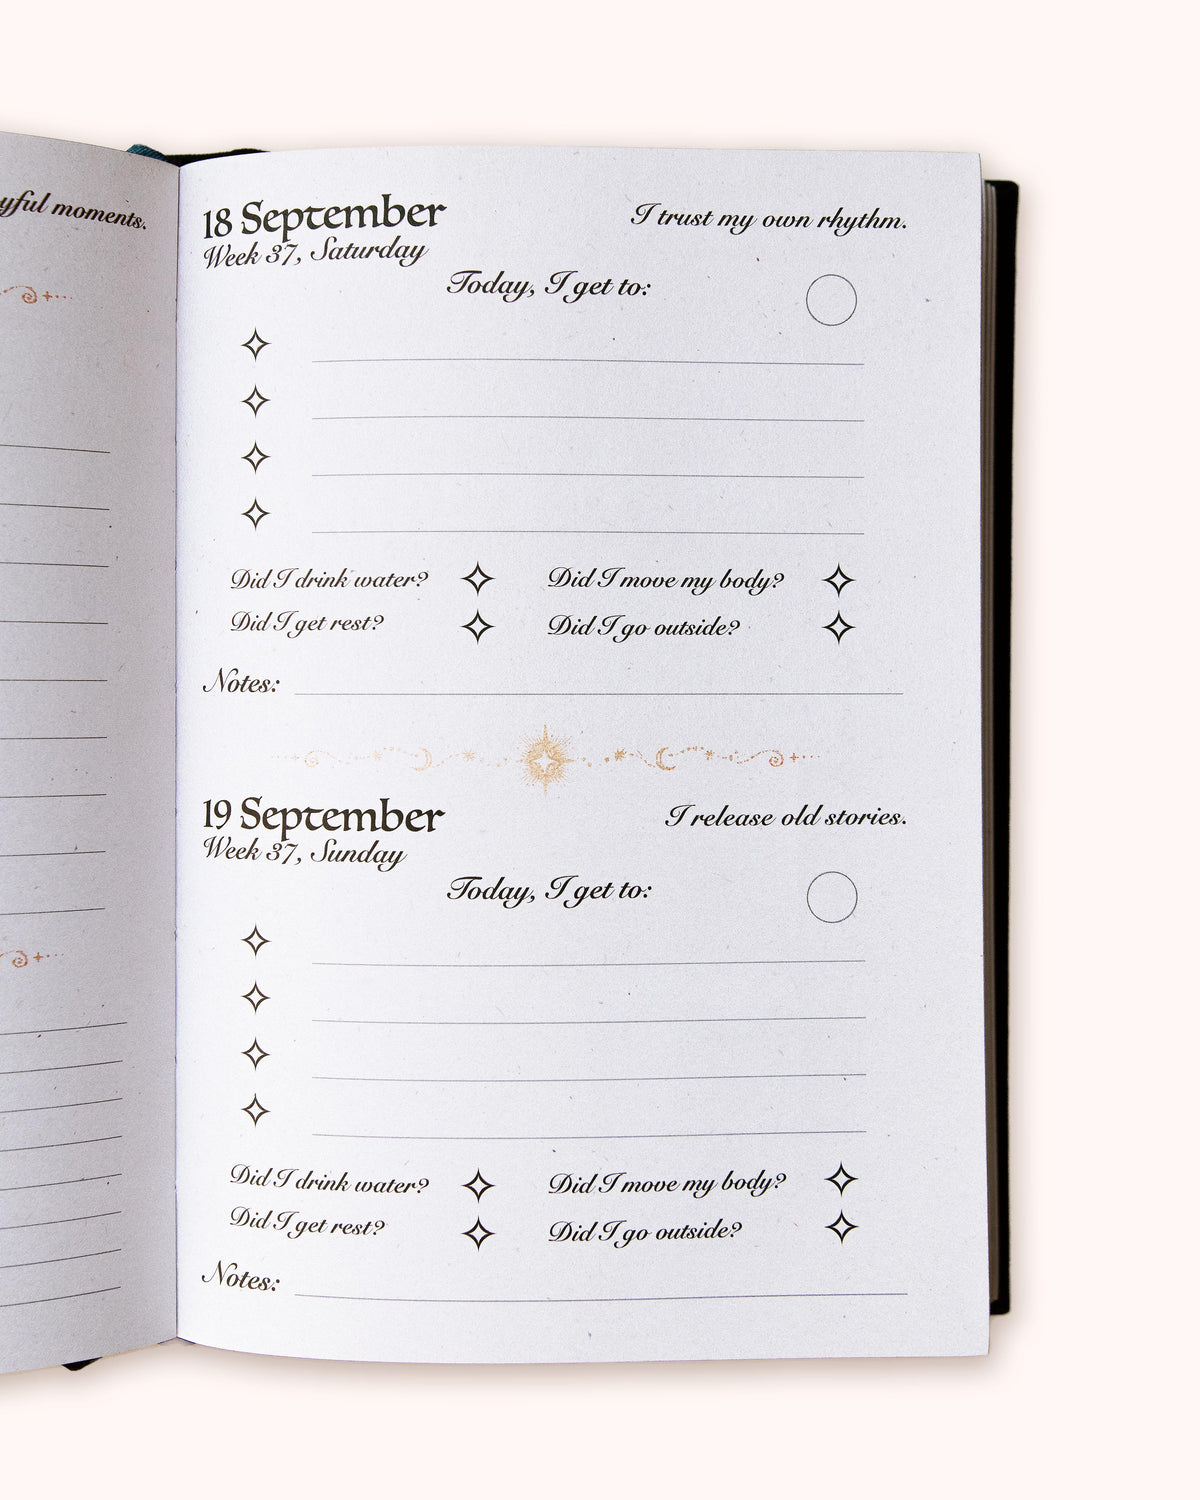 moments.
18 September
I trust my own rhythm.
Week 37, Saturday
Today, I get to:
Did I drink water?
Did I move my body?
Did I get rest?
Did I go outside?
Notes:
19 September
I release old stories.
Week 37, Sunday
Today, I get to:
Did I drink water?
Did I move my body?
Did I get rest?
Did I go outside?
Notes: